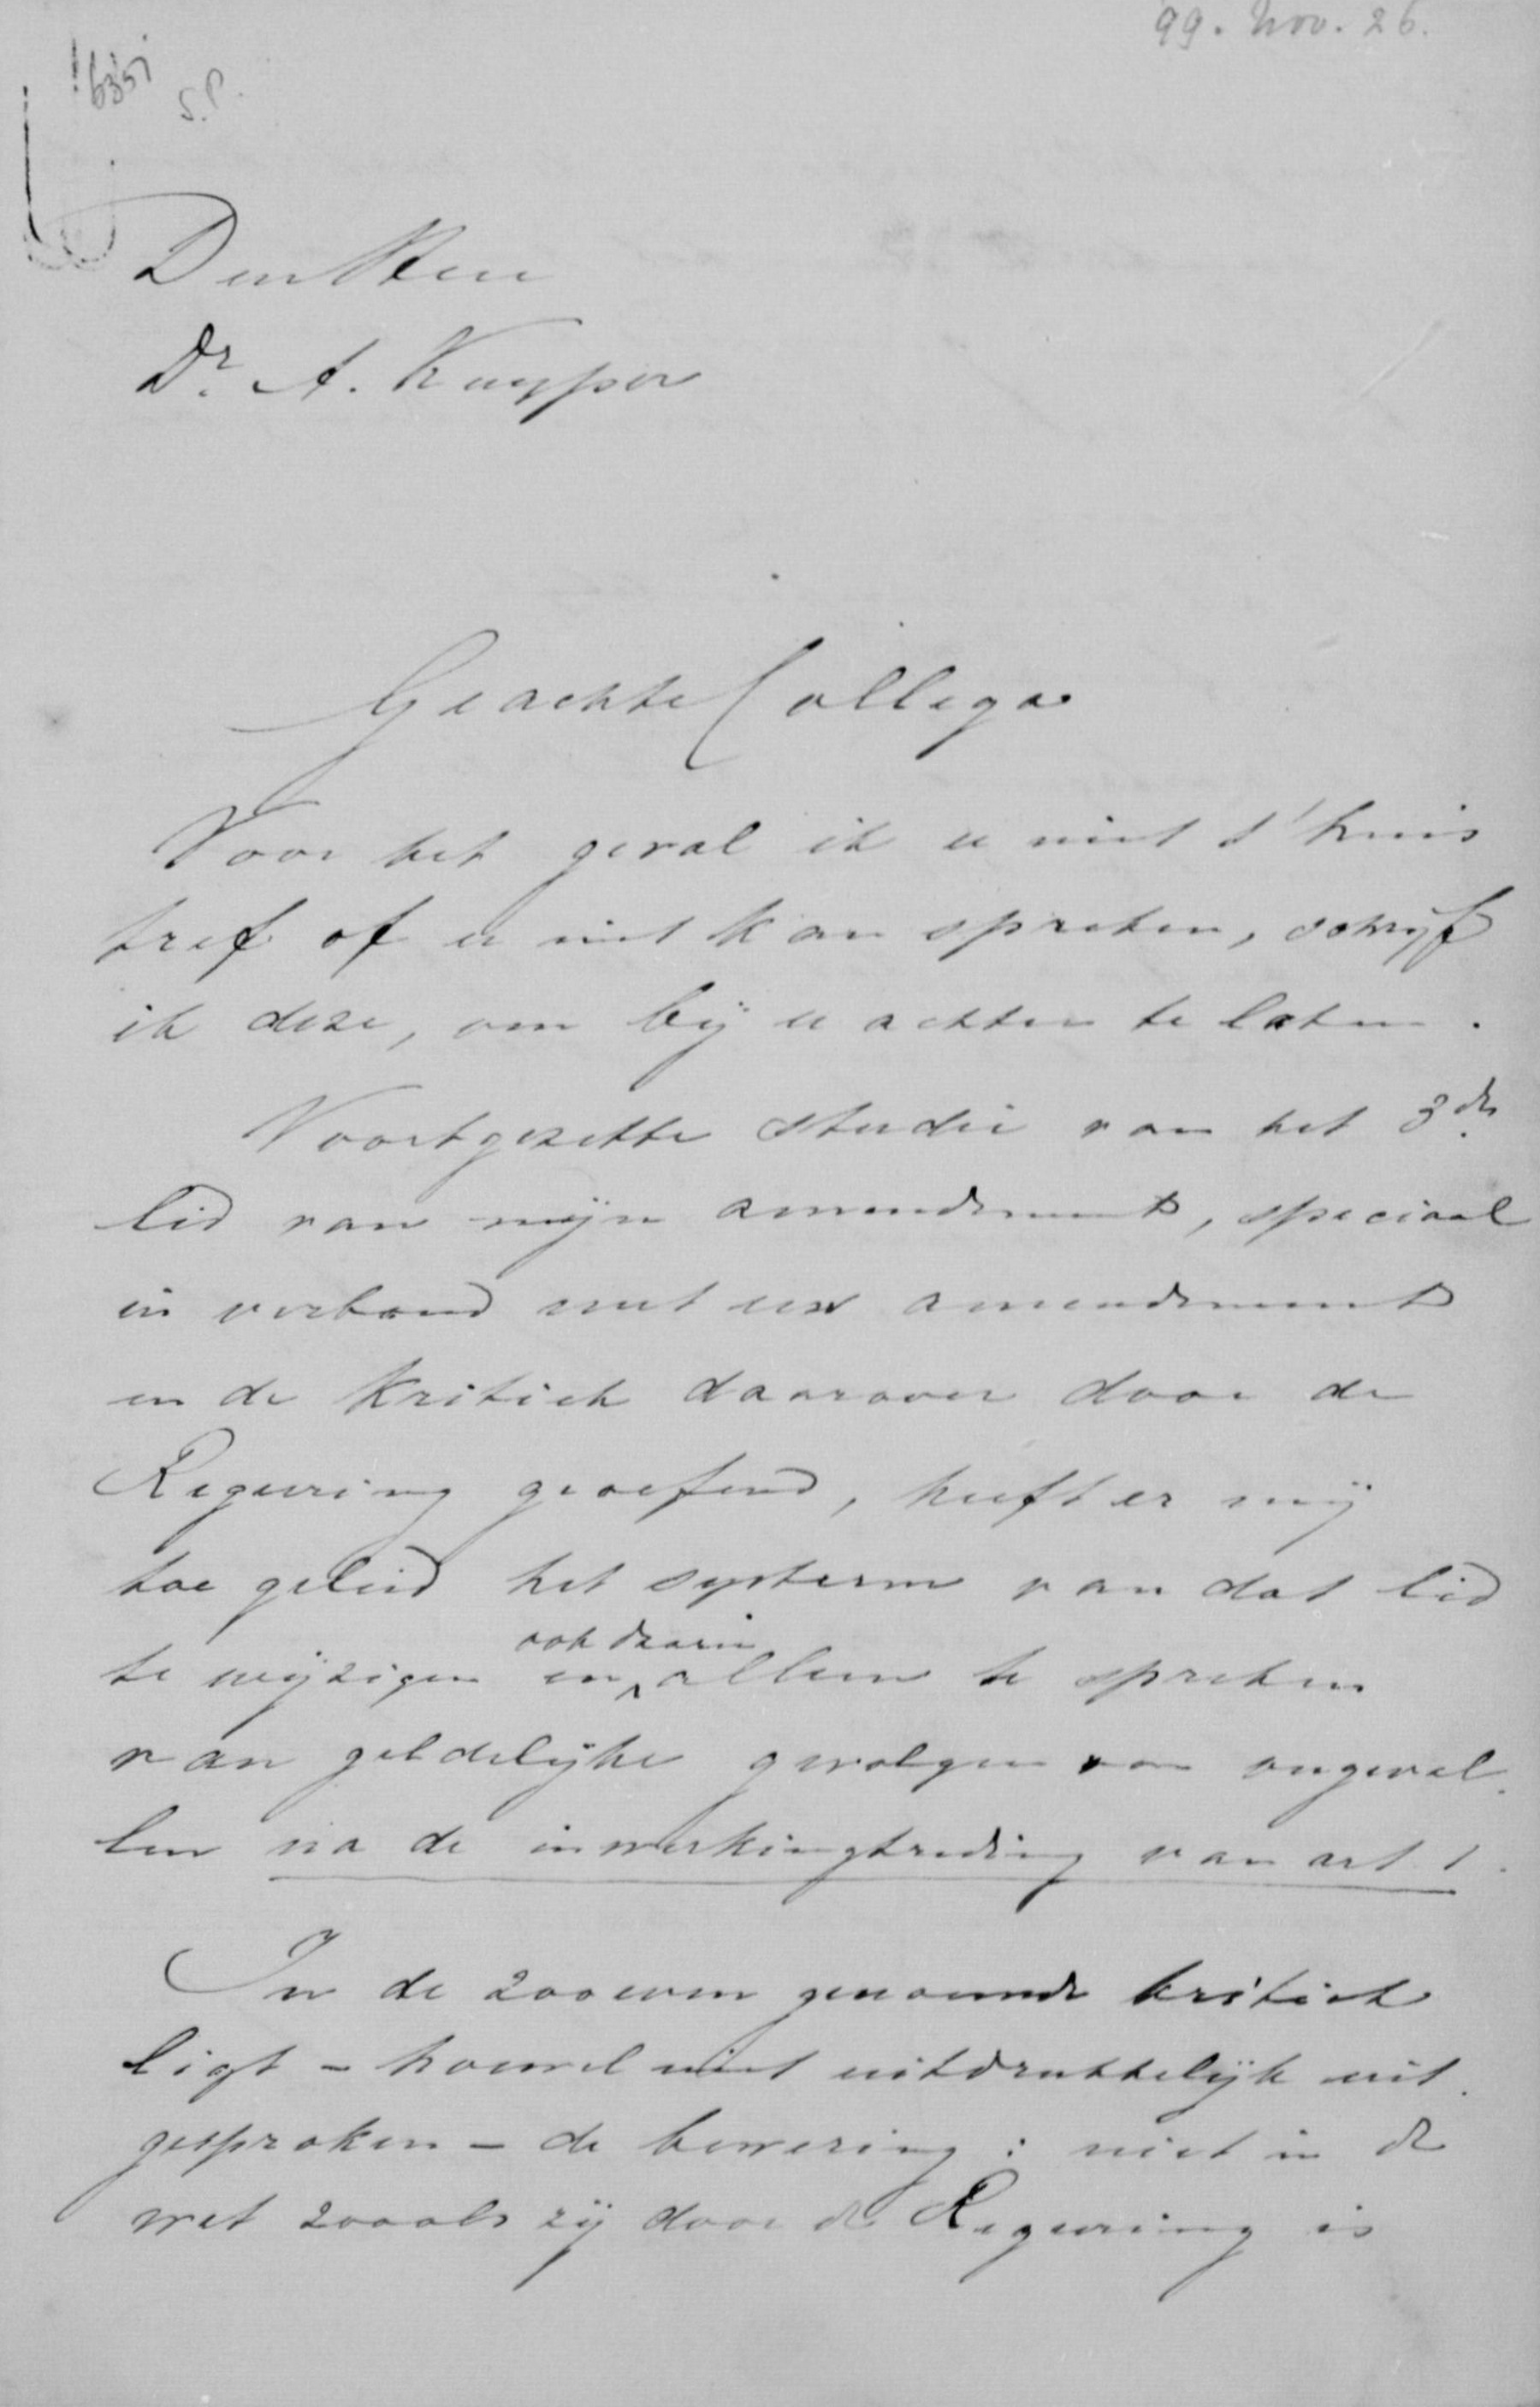 99. Nov. 26.
6351
S.P.
Den Heer
Dr. A. Kuyper
Geachte Collega
Voor het geval ik u niet t'huis
tref of u niet kan spreken, schrijf
ik deze, om bij u achter te laten.
Voortgezette studie van het 3de
lid van mijn amendement, speciaal
in verband met uw amendement
en de kritiek daarover door de
Regeering geoefend, heeft er mij
toe geleid het systeem van dat lid
te wijzigen en ook daarin alleen te spreken
van geldelijke gevolgen van ongeval
len na de inwerkingtreding van art. 1.
In de zooeven genoemde kritiek
ligt - hoewel niet uitdrukkelijk uit
gesproken - de bewering: niet in de
wet zooals zij door de Regeering is